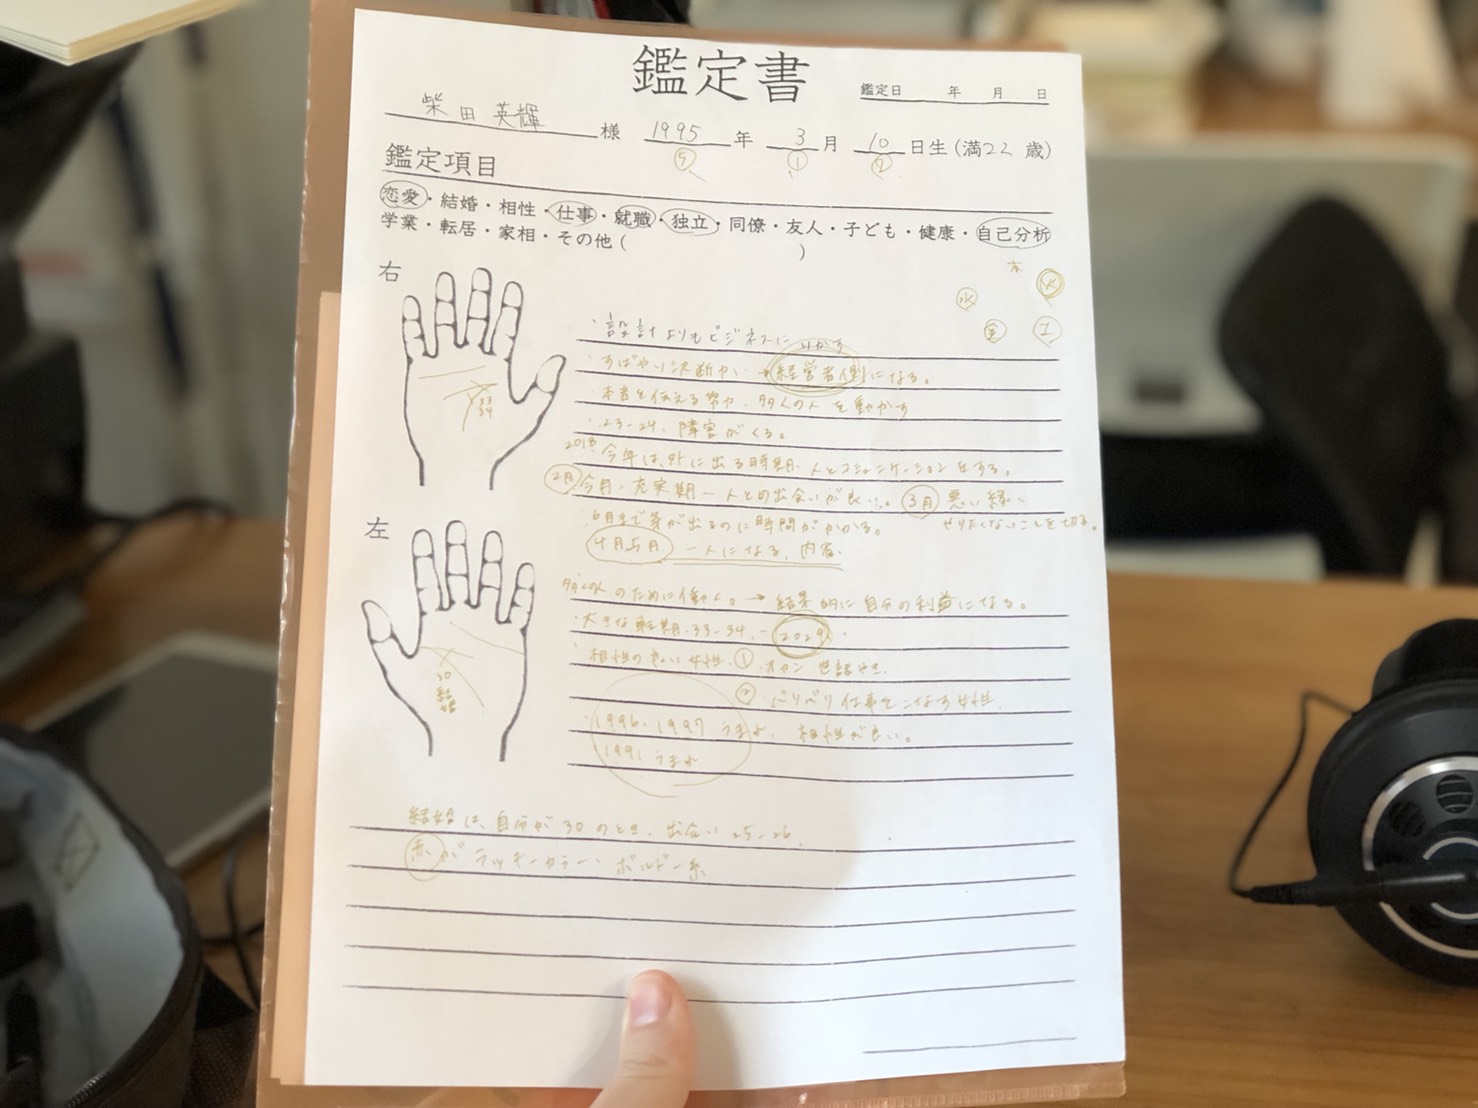 鑑定書
鑑定日 年 月 日
柴田 英輝 様 1995 年 3 月 10 日生(満22歳)
5 1 2
鑑定項目
恋愛・結婚・相性・仕事・就職・独立・同僚・友人・子ども・健康・自己分析
学業・転居・家相・その他( )
右
水 火
金 土
・設計よりもビジネスに
・すばやい決断力い→経営者側になる。
・本音を伝える努力、多くの人を動かす
・23-24、障害がくる。
2018 今年は、外に出る時期、人とコミュニケーションをする。
2月 今月、充実期ー人との出会いが良い。 3月 悪い縁、
6月まで芽が出るのに時間がかかる。 やりたくないことを切る。
4月5月 一人になる、内省。
33
34
左
多くの人のために働く。→結果的に自分の利益になる。
・大きな転期、33-34、-2029
・相性の良い女性、① オカン 世話やき
② バリバリ仕事をこなす女性
・1996、1997 うまれ、相性が良い。
1991 うまれ
30
結
婚
結婚は、自分が30のとき、出会い25-26、
赤がラッキーカラー、ボルドー系